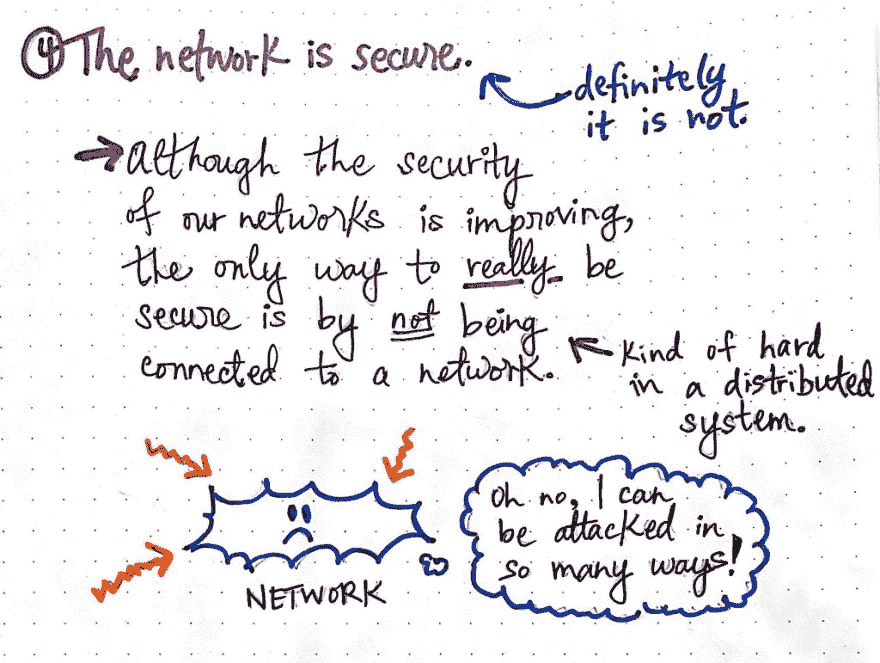 ④ The network is secure.
definitely
it is not.
→ although the security
of our networks is improving,
the only way to really be
secure is by not being
connected to a network.
Kind of hard
in a distributed
system.
Oh no, I can
be attacked in
so many ways!
NETWORK